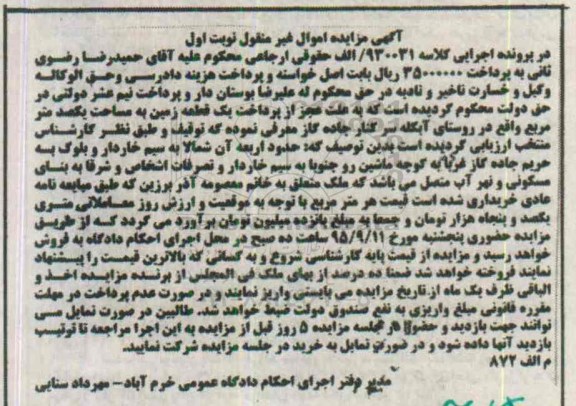 آگهی مزایده اموال غیر منقول نوبت اول
در پرونده اجرایی کلاسه ۹۳۰۰۳۱/ الف حقوقی ارجاعی محکوم علیه آقای حمیدرضا رضوی
ثانی به پرداخت ۳۵۰۰۰۰۰۰ ریال بابت اصل خواسته و پرداخت هزینه دادرسی وحق الوکاله
وکیل و خسارت تاخیر و تادیه در حق محکوم له علیرضا بوستان دار و پرداخت نیم عشر دولتی در
حق دولت محکوم گردیده است که به علت عجز از پرداخت یک قطعه زمین به مساحت یکصد متر
مربع واقع در روستای آبکله سر کنار جاده گاز معرفی نموده که توقیف و طبق نظر کارشناس
منتخب ارزیابی گردیده است بدین توصیف که: حدود اربعه آن شمالا به سیم خاردار و بلوک به
حریم جاده گاز غربا به کوچه ماشین رو جنوبا به سیم خاردار و تصرفات اشخاص و شرقا به بنای
مسکونی و نهر آب متصل می باشد که ملک متعلق به خانم معصومه آذر برزین که طبق مبایعه نامه
عادی خریداری شده است قیمت هر متر مربع با توجه به موقعیت و ارزش روز معاملاتی متری
یکصد و پنجاه هزار تومان و جمعا به مبلغ پانزده میلیون تومان برآورد می گردد که از طریق
مزایده حضوری پنجشنبه مورخ ۹۵/۹/۱۱ ساعت ده صبح در محل اجرای احکام دادگاه به فروش
خواهد رسید و مزایده از قیمت پایه کارشناسی شروع و به کسانی که بالاترین قیمت را پیشنهاد
نمایند فروخته خواهد شد ضمنا ده درصد از بهای ملک فی المجلس از برنده مزایده اخذ و
الباقی ظرف یک ماه از تاریخ مزایده می بایستی واریز نمایند و در صورت عدم پرداخت در مهلت
مقرره قانونی مبلغ واریزی به نفع صندوق دولت ضبط خواهد شد. طالبین در صورت تمایل می
توانند جهت بازدید و حضور در جلسه مزایده ۵ روز قبل از مزایده به این اجرا مراجعه تا ترتیب
بازدید آنها داده شود و در صورت تمایل به خرید در جلسه مزایده شرکت نمایید.
م الف ۸۷۲
مدیر دفتر اجرای احکام دادگاه عمومی خرم آباد – مهرداد سنایی